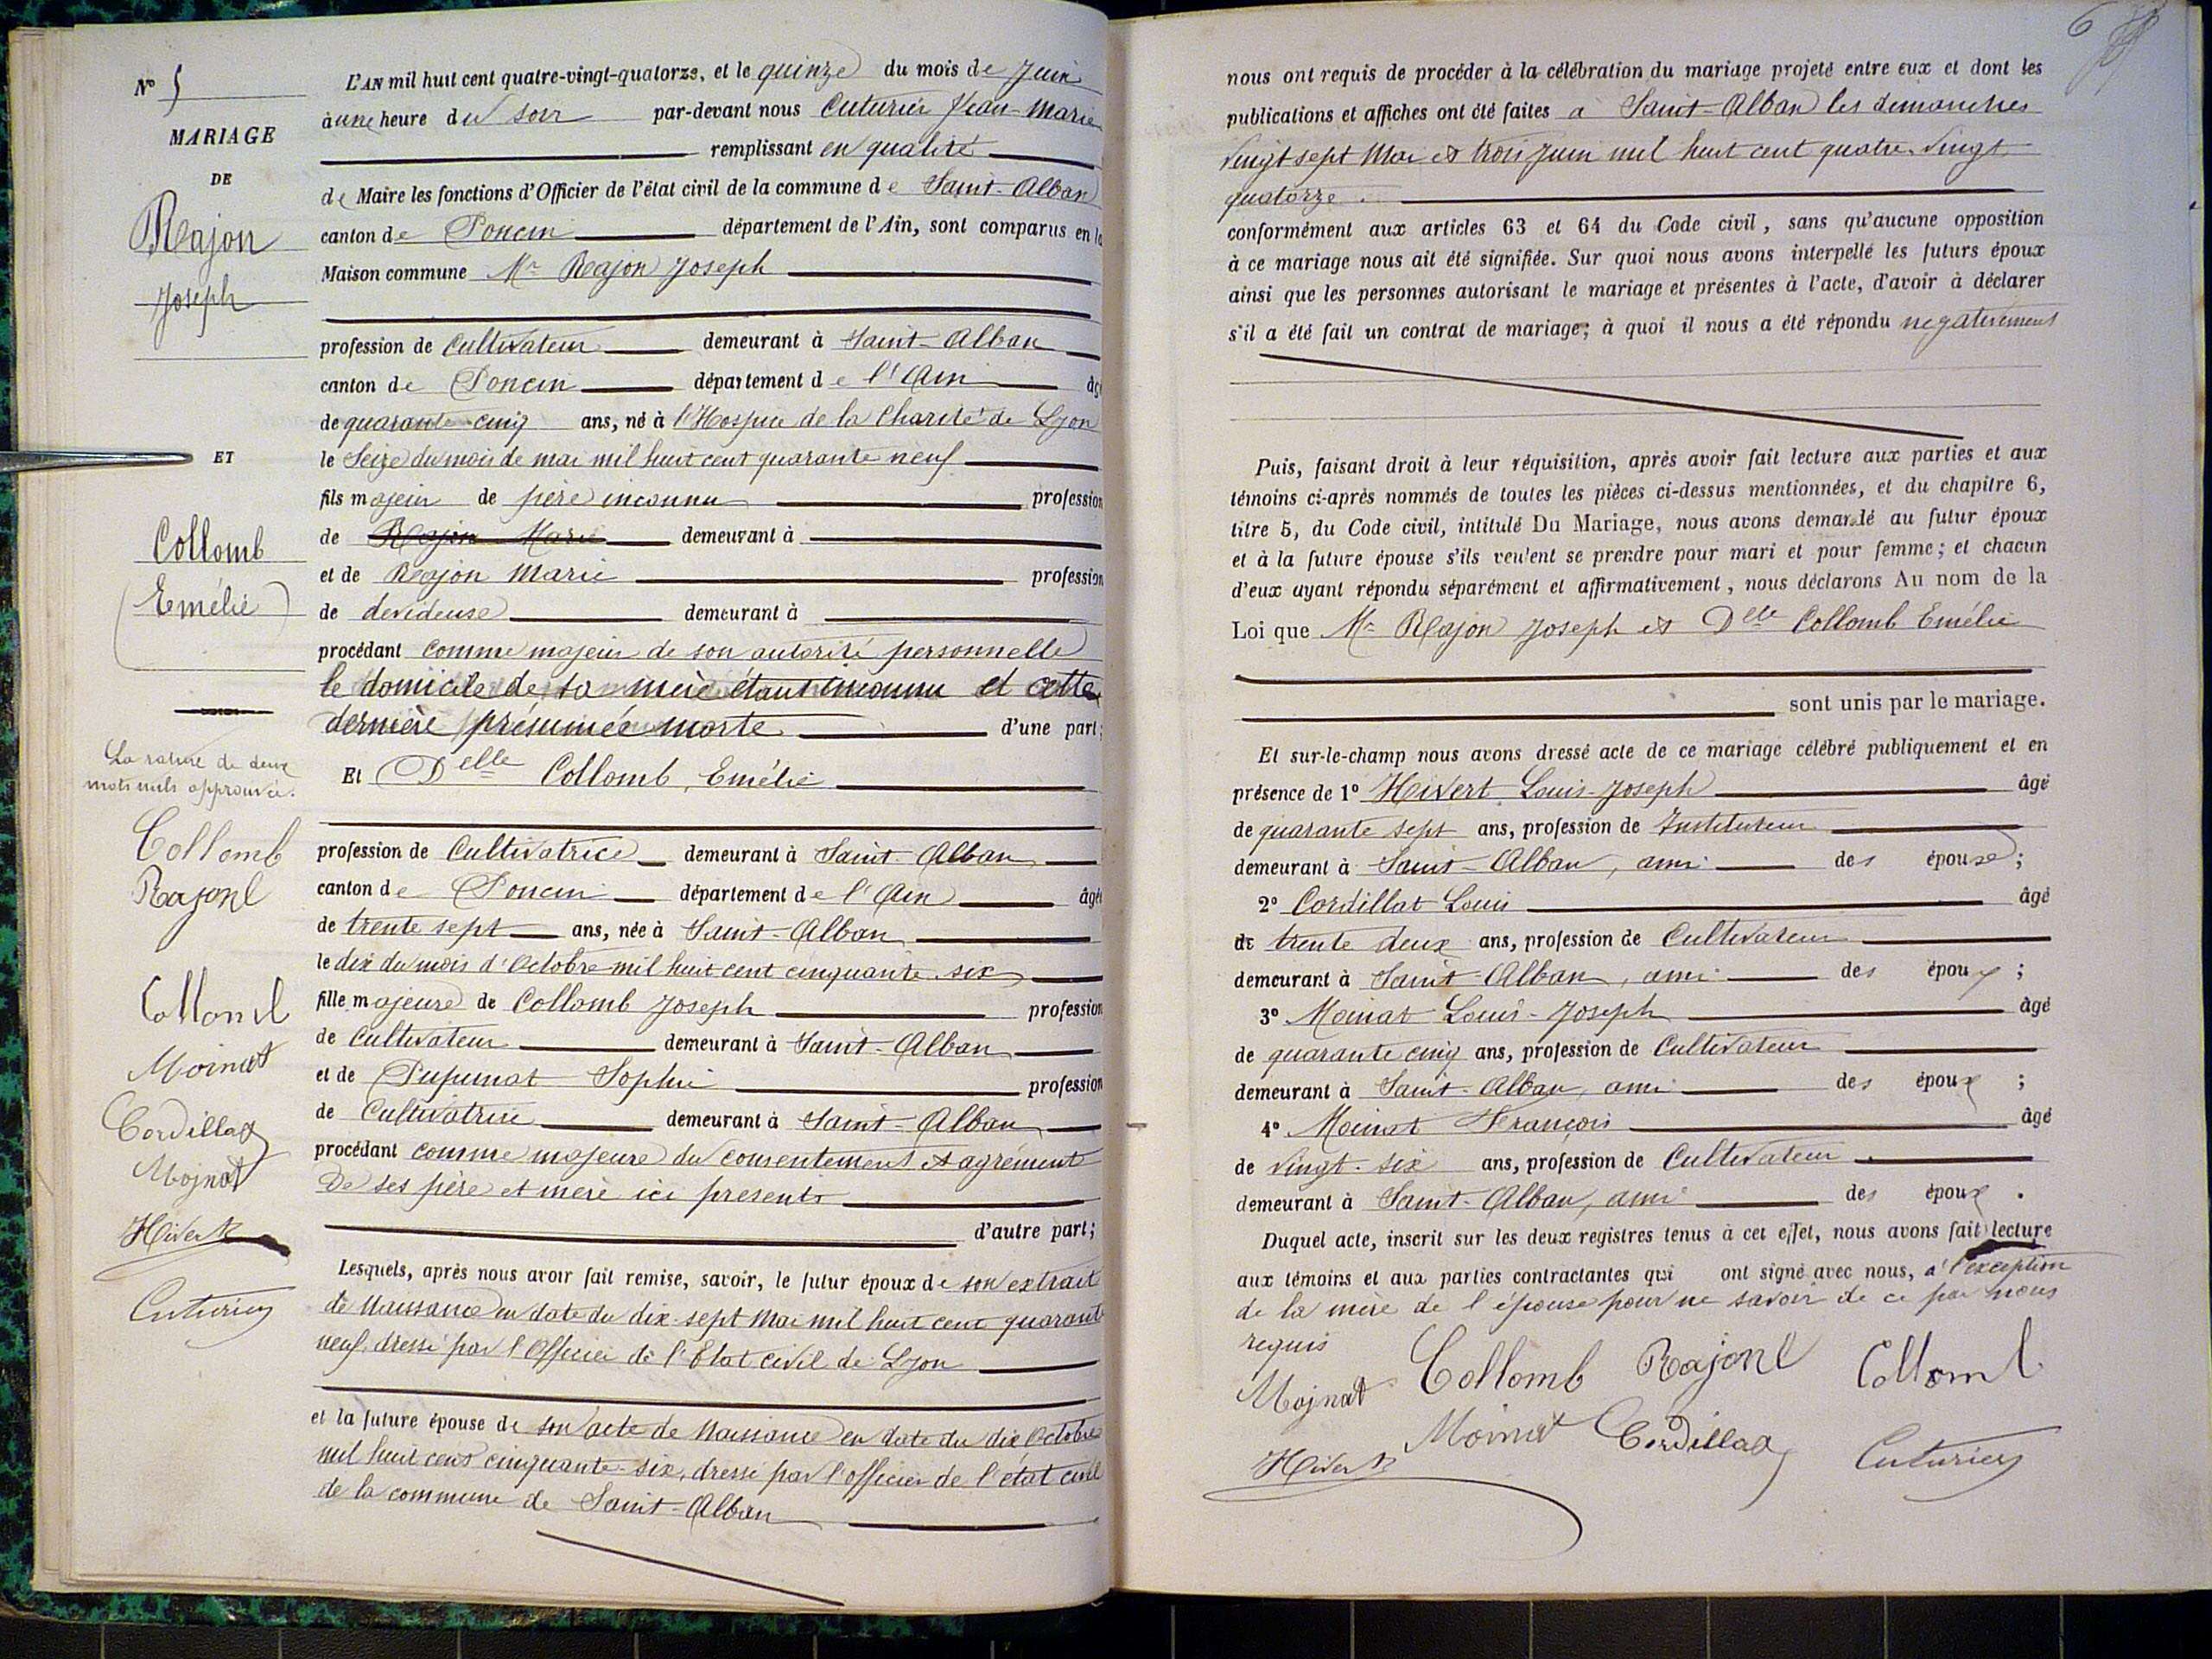 N° 5
MARIAGE
DE
Rajon
Joseph
ET
Collomb
Emélie
La rature de deux
mots nuls approuvée.
Collomb
Rajon
Collomb
Moinat
Cordillat
Mojnat
Hivert
Cuturier
L'AN mil huit cent quatre-vingt-quatorze, et le quinze du mois de Juin
à une heure du soir par-devant nous Cuturier Jean-Marie
remplissant en qualité
de Maire les fonctions d'Officier de l'état civil de la commune de Saint-Alban
canton de Poncin département de l'Ain, sont comparus en la
Maison commune Mr Rajon Joseph
profession de Cultivateur demeurant à Saint-Alban
canton de Poncin département de l'Ain âgé
de quarante-cinq ans, né à l'Hospice de la Charité de Lyon
le Seize du mois de mai mil huit cent quarante neuf
fils majeur de père inconnu profession
de Rajon Marie demeurant à
et de Rajon Marie profession
de devideuse demeurant à
procédant comme majeur de son autorité personnelle
le domicile de sa mère étant inconnu et cette
dernière présumée morte d'une part;
Et Delle Collomb, Emélie
profession de Cultivatrice demeurant à Saint-Alban
canton de Poncin département de l'Ain âgée
de trente sept ans, née à Saint-Alban
le dix du mois d'Octobre mil huit cent cinquante-six
fille majeure de Collomb Joseph profession
de Cultivateur demeurant à Saint-Alban
et de Pupunat Sophie profession
de Cultivatrice demeurant à Saint-Alban
procédant comme majeure du consentement et agrément
De ses père et mère ici presents
d'autre part;
Lesquels, après nous avoir fait remise, savoir, le futur époux de son extrait
de Naissance en date du dix-sept Mai mil huit cent quarante
neuf, dressé par l'Officier de l'Etat civil de Lyon
et la future épouse de son acte de Naissance en date du dix Octobre
mil huit cent cinquante-six, dressé par l'officier de l'état civil
de la commune de Saint-Alban
6
nous ont requis de procéder à la célébration du mariage projeté entre eux et dont les
publications et affiches ont été faites à Saint-Alban les dimanches
vingt sept Mai et trois Juin mil huit cent quatre-vingt-
quatorze.
conformément aux articles 63 et 64 du Code civil, sans qu'aucune opposition
à ce mariage nous ait été signifiée. Sur quoi nous avons interpellé les futurs époux
ainsi que les personnes autorisant le mariage et présentes à l'acte, d'avoir à déclarer
s'il a été fait un contrat de mariage; à quoi il nous a été répondu negativement
Puis, faisant droit à leur réquisition, après avoir fait lecture aux parties et aux
témoins ci-après nommés de toutes les pièces ci-dessus mentionnées, et du chapitre 6,
titre 5, du Code civil, intitulé Du Mariage, nous avons demandé au futur époux
et à la future épouse s'ils veulent se prendre pour mari et pour femme; et chacun
d'eux ayant répondu séparément et affirmativement, nous déclarons Au nom de la
Loi que Mr Rajon Joseph et Delle Collomb Emélie
sont unis par le mariage.
Et sur-le-champ nous avons dressé acte de ce mariage célébré publiquement et en
présence de 1° Hivert Louis-Joseph âgé
de quarante sept ans, profession de Instituteur
demeurant à Saint-Alban, ami des époux;
2° Cordillat Louis âgé
de trente deux ans, profession de Cultivateur
demeurant à Saint-Alban, ami des époux;
3° Moinat Louis-Joseph âgé
de quarante cinq ans, profession de Cultivateur
demeurant à Saint-Alban, ami des époux;
4° Moinat François âgé
de vingt-six ans, profession de Cultivateur
demeurant à Saint-Alban, ami des époux.
Duquel acte, inscrit sur les deux registres tenus à cet effet, nous avons fait lecture
aux témoins et aux parties contractantes qui ont signé avec nous, à l'exception
de la mère de l'épouse pour ne savoir de ce par nous
requis
Mojnat Collomb Rajon Collomb
Hivert Moinat Cordillat Cuturier